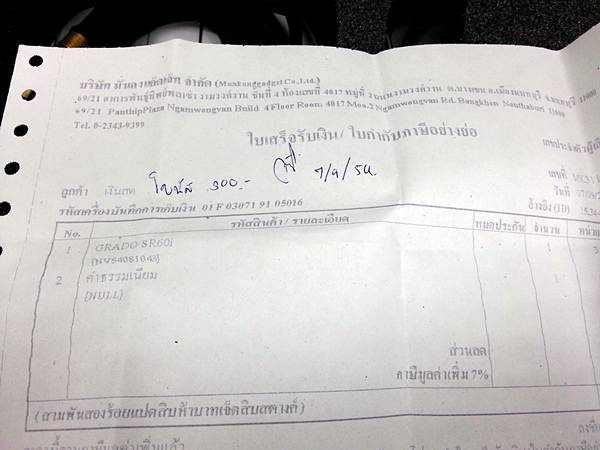 บริษัท มั่นคงแก็ดเจ็ท จำกัด (Munkonggadget Co.,Ltd.)
69/21 อาคารพันธุ์ทิพย์พลาซ่า งามวงศ์วาน ชั้นที่ 4 ห้องเลขที่ 4017 หมู่ที่ 2 ถนนงามวงศ์วาน ต.บางเขน อ.เมืองนนทบุรี จ.นนทบุรี 11000
69/21 PanthipPlaza Ngamwongvan Build 4 Floor Room 4017 Moo.2 Ngamwongvan Rd. Bangkhen Nonthaburi 11000
Tel. 0-2343-9399
ใบเสร็จรับเงิน / ใบกำกับภาษีอย่างย่อ
เลขประจำตัวผู้เสี
ลูกค้า เงินสด
300.-
เลขที่
วันที่
รหัสเครื่องบันทึกการเก็บเงิน 01 F 03071 91 05016
อ้างอิง (ID)
No. รหัสสินค้า / รายละเอียด หมดประกัน จำนวน หน่วย
1 GRADO SR60i
[NVS4081043]
2 ค่าธรรมเนียม
[NULL]
ส่วนลด
ภาษีมูลค่าเพิ่ม 7%
(สามพันสองร้อยแปดสิบห้าบาทเจ็ดสิบสตางค์)